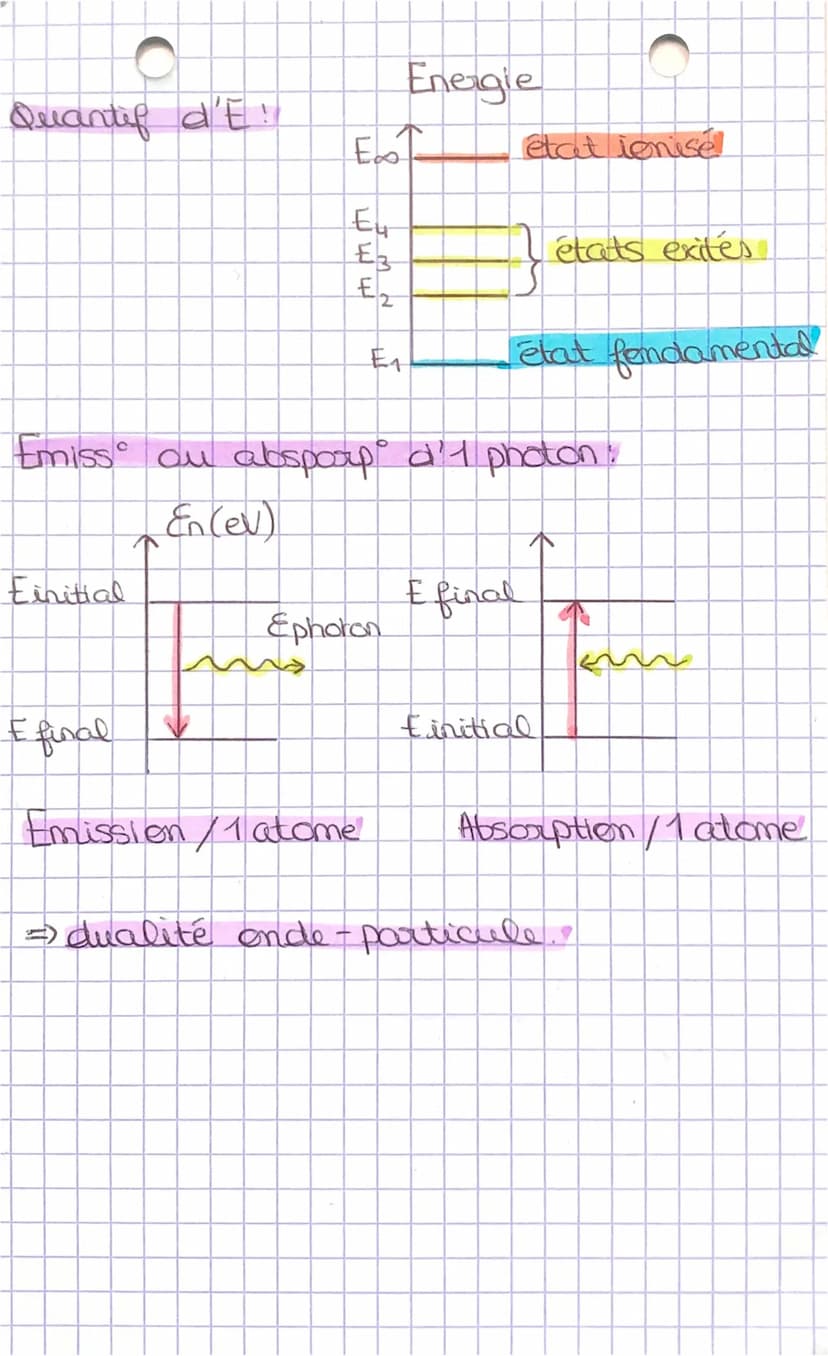 Energie
Quantif d'E :
E∞ état ionisé
E4
E3 états exités
E2
E1 état fondamental
Emiss° ou absporp° d'1 photon :
En (eV)
E initial E final
Ephoton
E final E initial
Emission / 1 atome Absorption / 1 atome
⇒ dualité onde-particule.